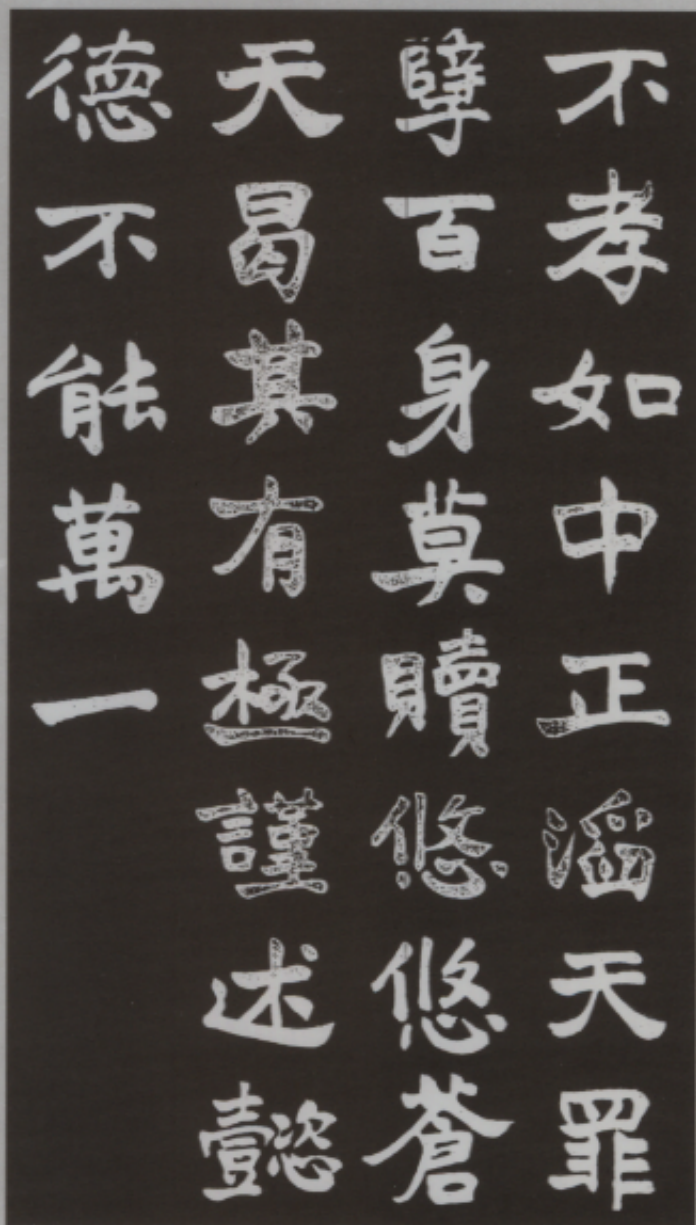 不孝如中正滔天罪
孽百身莫贖悠悠蒼
天曷其有極謹述懿
德不能萬一